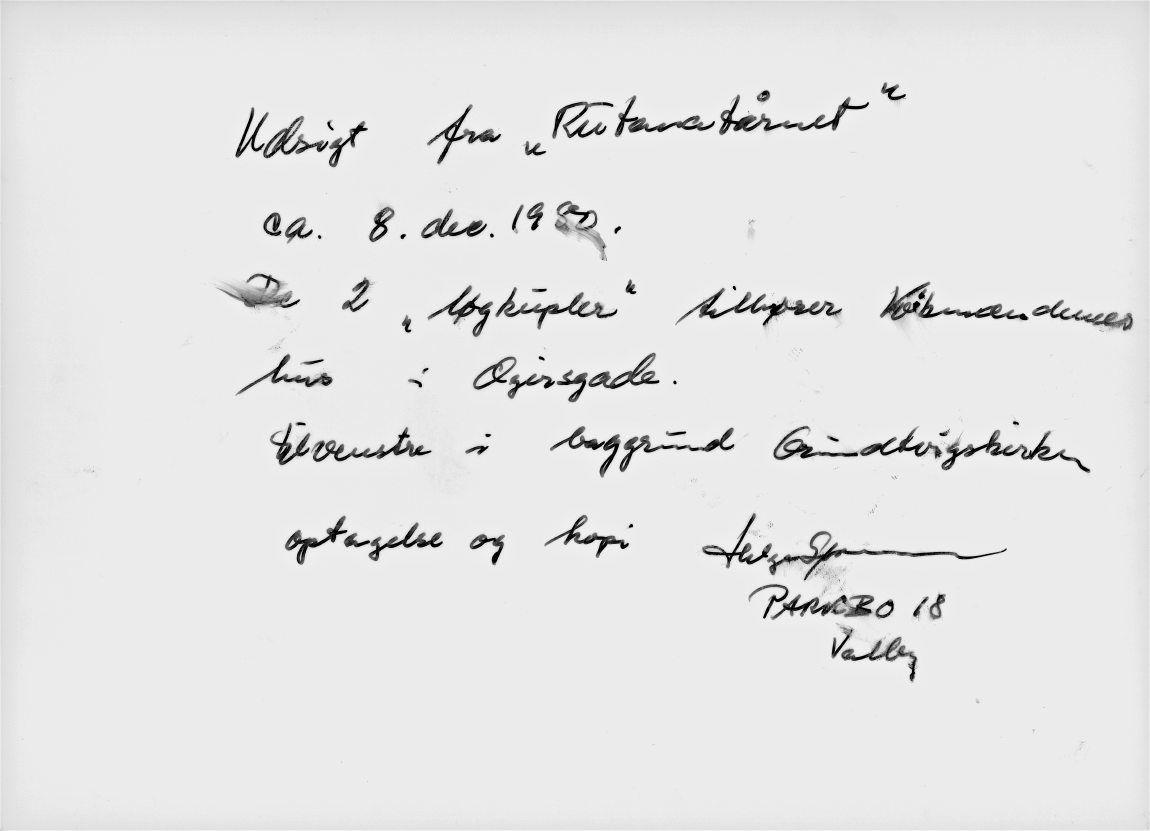 Udsigt fra „Rutanatårnet"
ca. 8. dec. 1980.
De 2 „løgkupler" tilhører Købmændenes
hus i Ægirsgade.
Tilvenstre i baggrund Grundtvigskirken
optagelse og kopi Helge
PARKBO 18
Valby